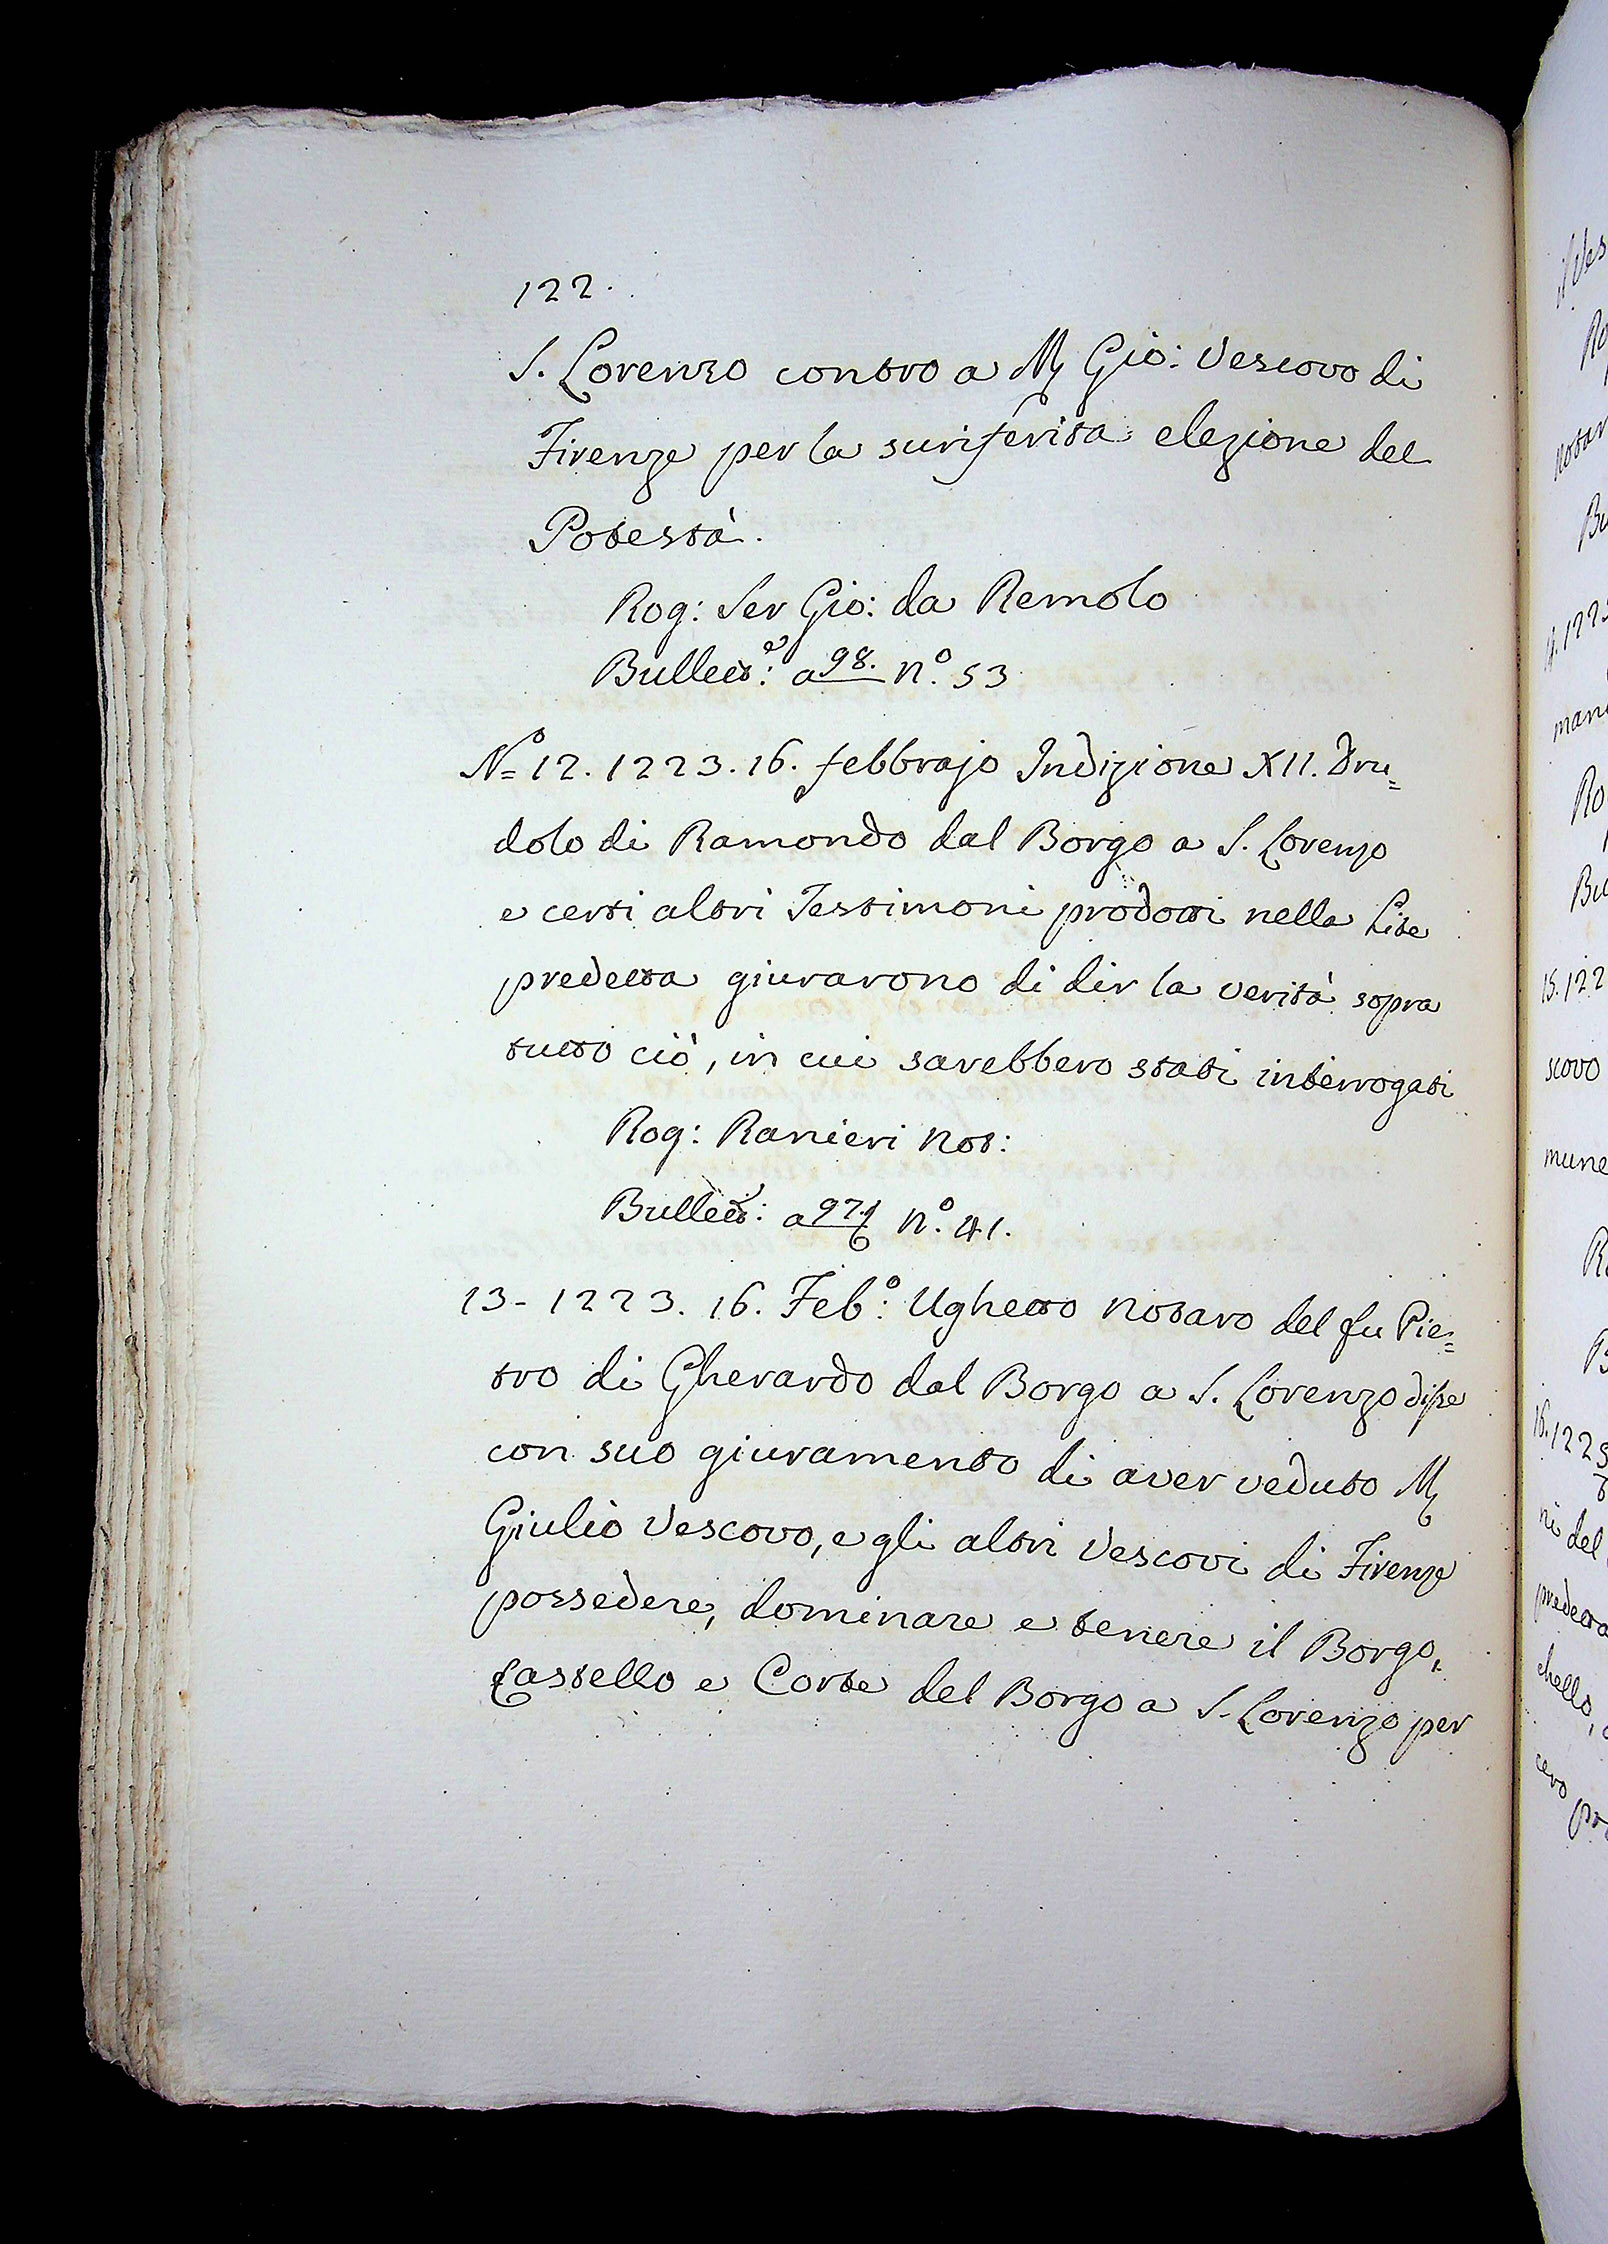 122.
S. Lorenzo contro a M Gio: Vescovo di
Firenze per la suriferita elezione del
Potestà.
Rog: Ser Gio: da Remolo
Bullett:º a 98. nº. 53
Nº= 12. 1223. 16. febbrajo Indizione XII. Dru=
dolo di Ramondo dal Borgo a S. Lorenzo
e certi altri Testimoni prodotti nella Lite
predetta giurarono di dir la verità sopra
tutto ciò, in cui sarebbero stati interrogati
Rog: Ranieri Not:
Bullett: a 97 nº. 41.
13- 1223. 16. Febº: Ughetto Notaro del fu Pie=
tro di Gherardo dal Borgo a S. Lorenzo disse
con suo giuramento di aver veduto M
Giulio Vescovo, e gli altri Vescovi di Firenze
possedere, dominare e tenere il Borgo,
Castello e Corte del Borgo a S. Lorenzo per
15. 122
scovo
mune
ni del
predetta
chello,